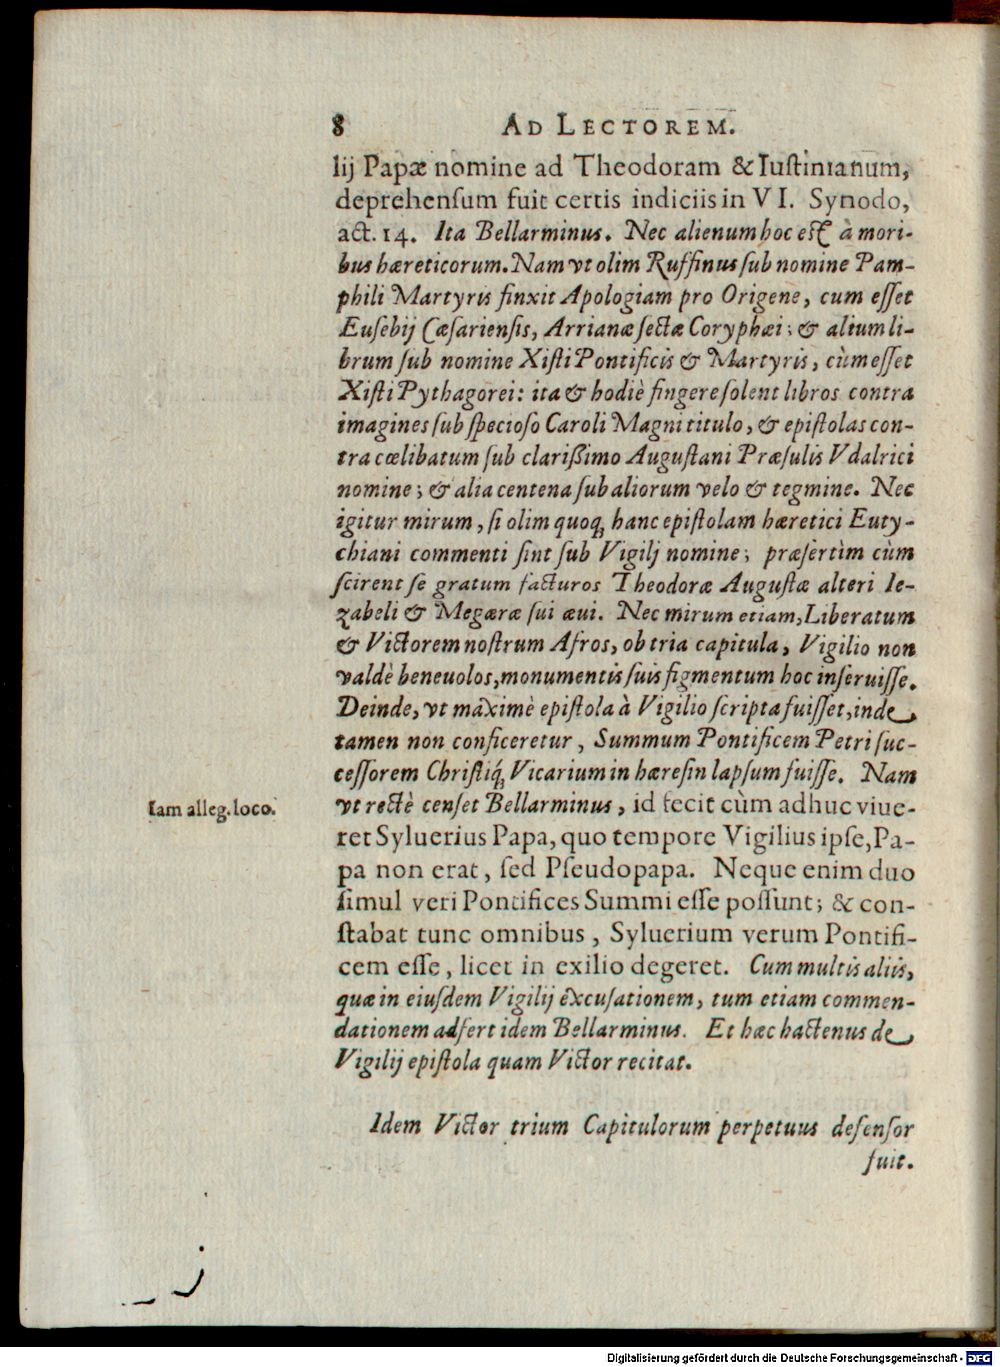 8 AD LECTOREM.
lij Papæ nomine ad Theodoram & Iustinianum,
deprehensum fuit certis indiciis in VI. Synodo,
act. 14. Ita Bellarminus. Nec alienum hoc est à mori-
bus hæreticorum. Nam vt olim Ruffinus sub nomine Pam-
phili Martyris finxit Apologiam pro Origene, cum esset
Eusebij Cæsariensis, Arrianæ sectæ Coryphæi; & alium li-
brum sub nomine Xisti Pontificis & Martyris, cùm esset
Xisti Pythagorei: ita & hodiè fingere solent libros contra
imagines sub specioso Caroli Magni titulo, & epistolas con-
tra cœlibatum sub clarißimo Augustani Præsulis Vdalrici
nomine; & alia centena sub aliorum velo & tegmine. Nec
igitur mirum, si olim quoq; hanc epistolam hæretici Euty-
chiani commenti sint sub Vigilj nomine; præsertìm cùm
scirent se gratum facturos Theodoræ Augustæ alteri Ie-
zabeli & Megæræ sui æui. Nec mirum etiam, Liberatum
& Victorem nostrum Afros, ob tria capitula, Vigilio non
valdè beneuolos, monumentis suis figmentum hoc inseruisse.
Deinde, vt maximè epistola à Vigilio scripta fuisset, inde
tamen non conficeretur, Summum Pontificem Petri suc-
cessorem Christiq́; Vicarium in hæresin lapsum fuisse. Nam
Iam alleg. loco.
vt rectè censet Bellarminus, id fecit cùm adhuc viue-
ret Syluerius Papa, quo tempore Vigilius ipse, Pa-
pa non erat, sed Pseudopapa. Neque enim duo
simul veri Pontifices Summi esse possunt; & con-
stabat tunc omnibus, Syluerium verum Pontifi-
cem esse, licet in exilio degeret. Cum multis aliis,
quæ in eiusdem Vigilij excusationem, tum etiam commen-
dationem adfert idem Bellarminus. Et hæc hactenus de
Vigilij epistola quam Victor recitat.
Idem Victor trium Capitulorum perpetuus defensor
fuit.
Digitalisierung gefördert durch die Deutsche Forschungsgemeinschaft - DFG